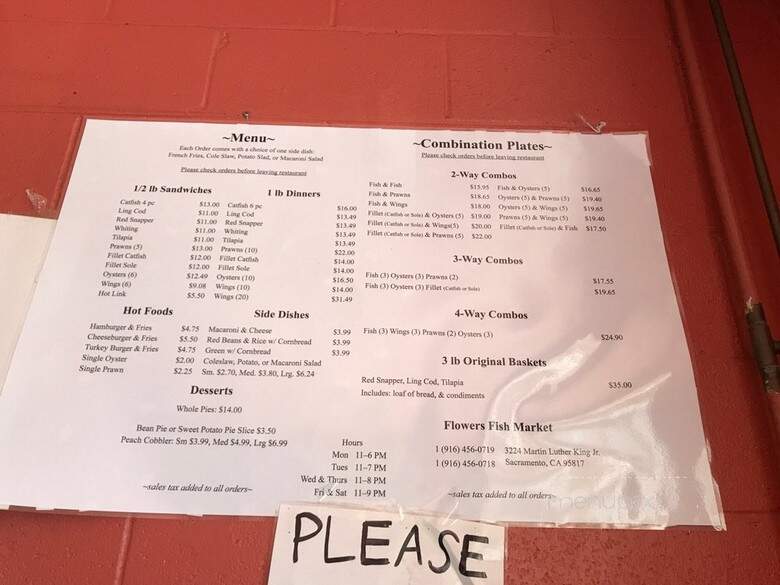 ~Menu~
Each Order comes with a choice of one side dish:
French Fries, Cole Slaw, Potato Slad, or Macaroni Salad
Please check orders before leaving restaurant
1/2 lb Sandwiches
Catfish 4 pc $13.00
Ling Cod $11.00
Red Snapper $11.00
Whiting $11.00
Tilapia $11.00
Prawns (5) $13.00
Fillet Catfish $12.00
Fillet Sole $12.00
Oysters (6) $12.49
Wings (6) $9.08
Hot Link $5.50
1 lb Dinners
Catfish 6 pc $16.00
Ling Cod $13.49
Red Snapper $13.49
Whiting $13.49
Tilapia $13.49
Prawns (10) $22.00
Fillet Catfish $14.00
Fillet Sole $14.00
Oysters (10) $16.50
Wings (10) $14.00
Wings (20) $31.49
Hot Foods
Hamburger & Fries $4.75
Cheeseburger & Fries $5.50
Turkey Burger & Fries $4.75
Single Oyster $2.00
Single Prawn $2.25
Side Dishes
Macaroni & Cheese $3.99
Red Beans & Rice w/ Cornbread $3.99
Green w/ Cornbread $3.99
Coleslaw, Potato, or Macaroni Salad
Sm. $2.70, Med. $3.80, Lrg. $6.24
Desserts
Whole Pies: $14.00
Bean Pie or Sweet Potato Pie Slice $3.50
Peach Cobbler: Sm $3.99, Med $4.99, Lrg $6.99
Hours
Mon 11-6 PM
Tues 11-7 PM
Wed & Thurs 11-8 PM
Fri & Sat 11-9 PM
~sales tax added to all orders~
~Combination Plates~
Please check orders before leaving restaurant
2-Way Combos
Fish & Fish $15.95
Fish & Prawns $18.65
Fish & Wings $18.00
Fillet (Catfish or Sole) & Oysters (5) $19.00
Fillet (Catfish or Sole) & Wings(5) $20.00
Fillet (Catfish or Sole) & Prawns (5) $22.00
Fish & Oysters (5) $16.65
Oysters (5) & Prawns (5) $19.40
Oysters (5) & Wings (5) $19.65
Prawns (5) & Wings (5) $19.40
Fillet (Catfish or Sole) & Fish $17.50
3-Way Combos
Fish (3) Oysters (3) Prawns (2) $17.55
Fish (3) Oysters (3) Fillet (Catfish or Sole) $19.65
4-Way Combos
Fish (3) Wings (3) Prawns (2) Oysters (3) $24.90
3 lb Original Baskets
Red Snapper, Ling Cod, Tilapia $35.00
Includes: loaf of bread, & condiments
Flowers Fish Market
1 (916) 456-0719 3224 Martin Luther King Jr.
1 (916) 456-0718 Sacramento, CA 95817
~sales tax added to all orders~
PLEASE